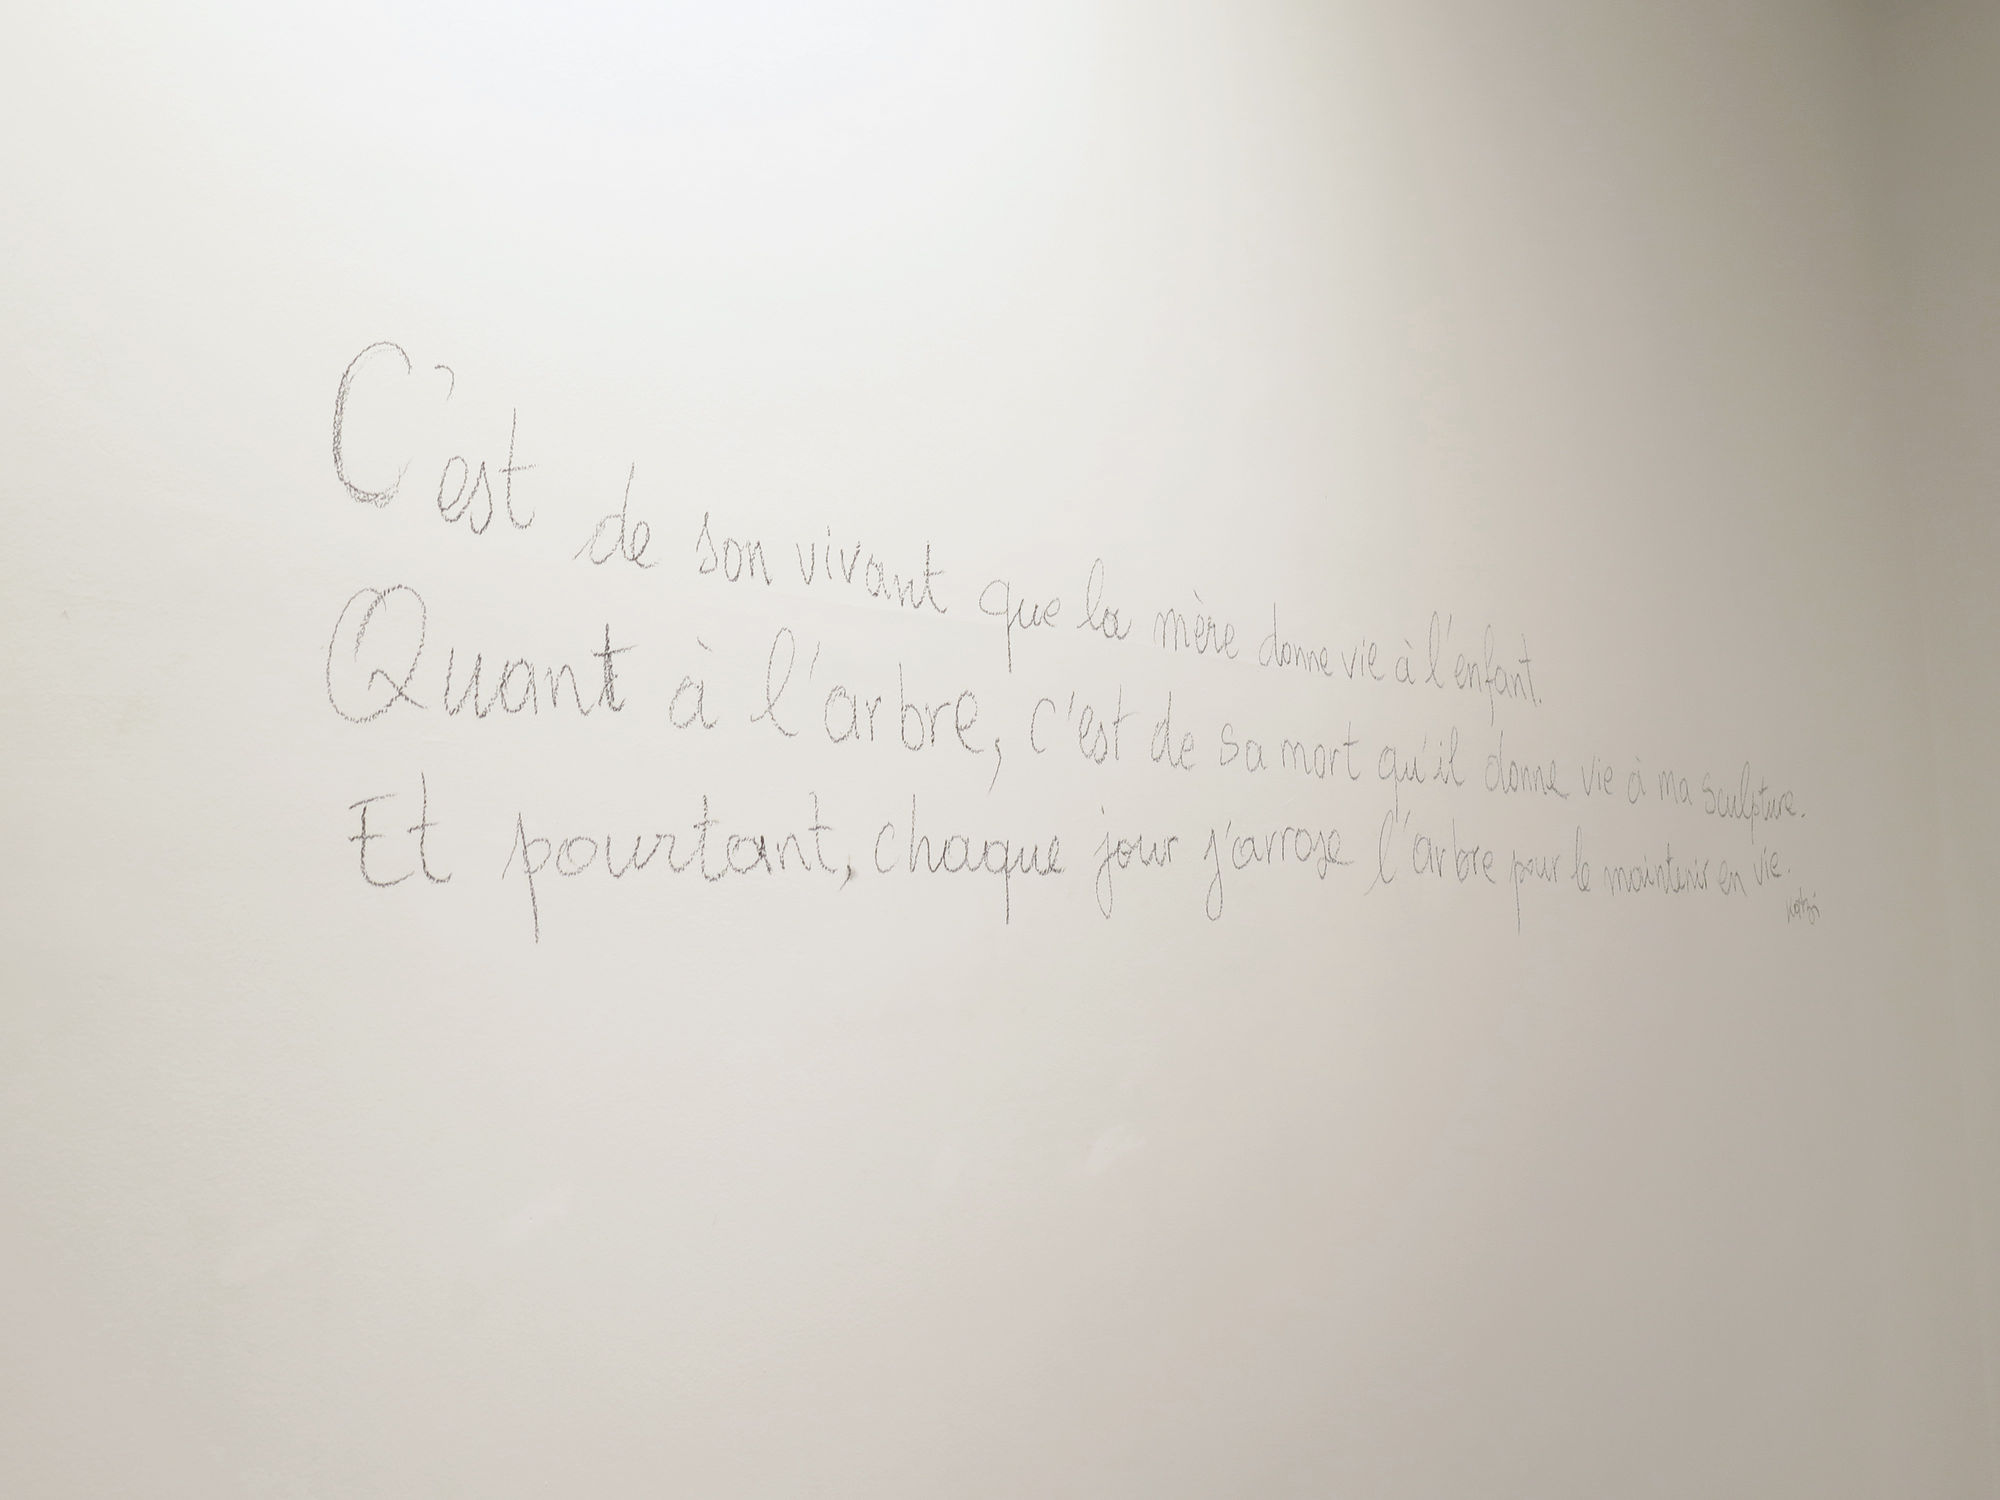 C'est de son vivant que la mère donne vie à l'enfant.
Quant à l'arbre, c'est de sa mort qu'il donne vie à ma sculpture.
Et pourtant, chaque jour j'arrose l'arbre pour le maintenir en vie.